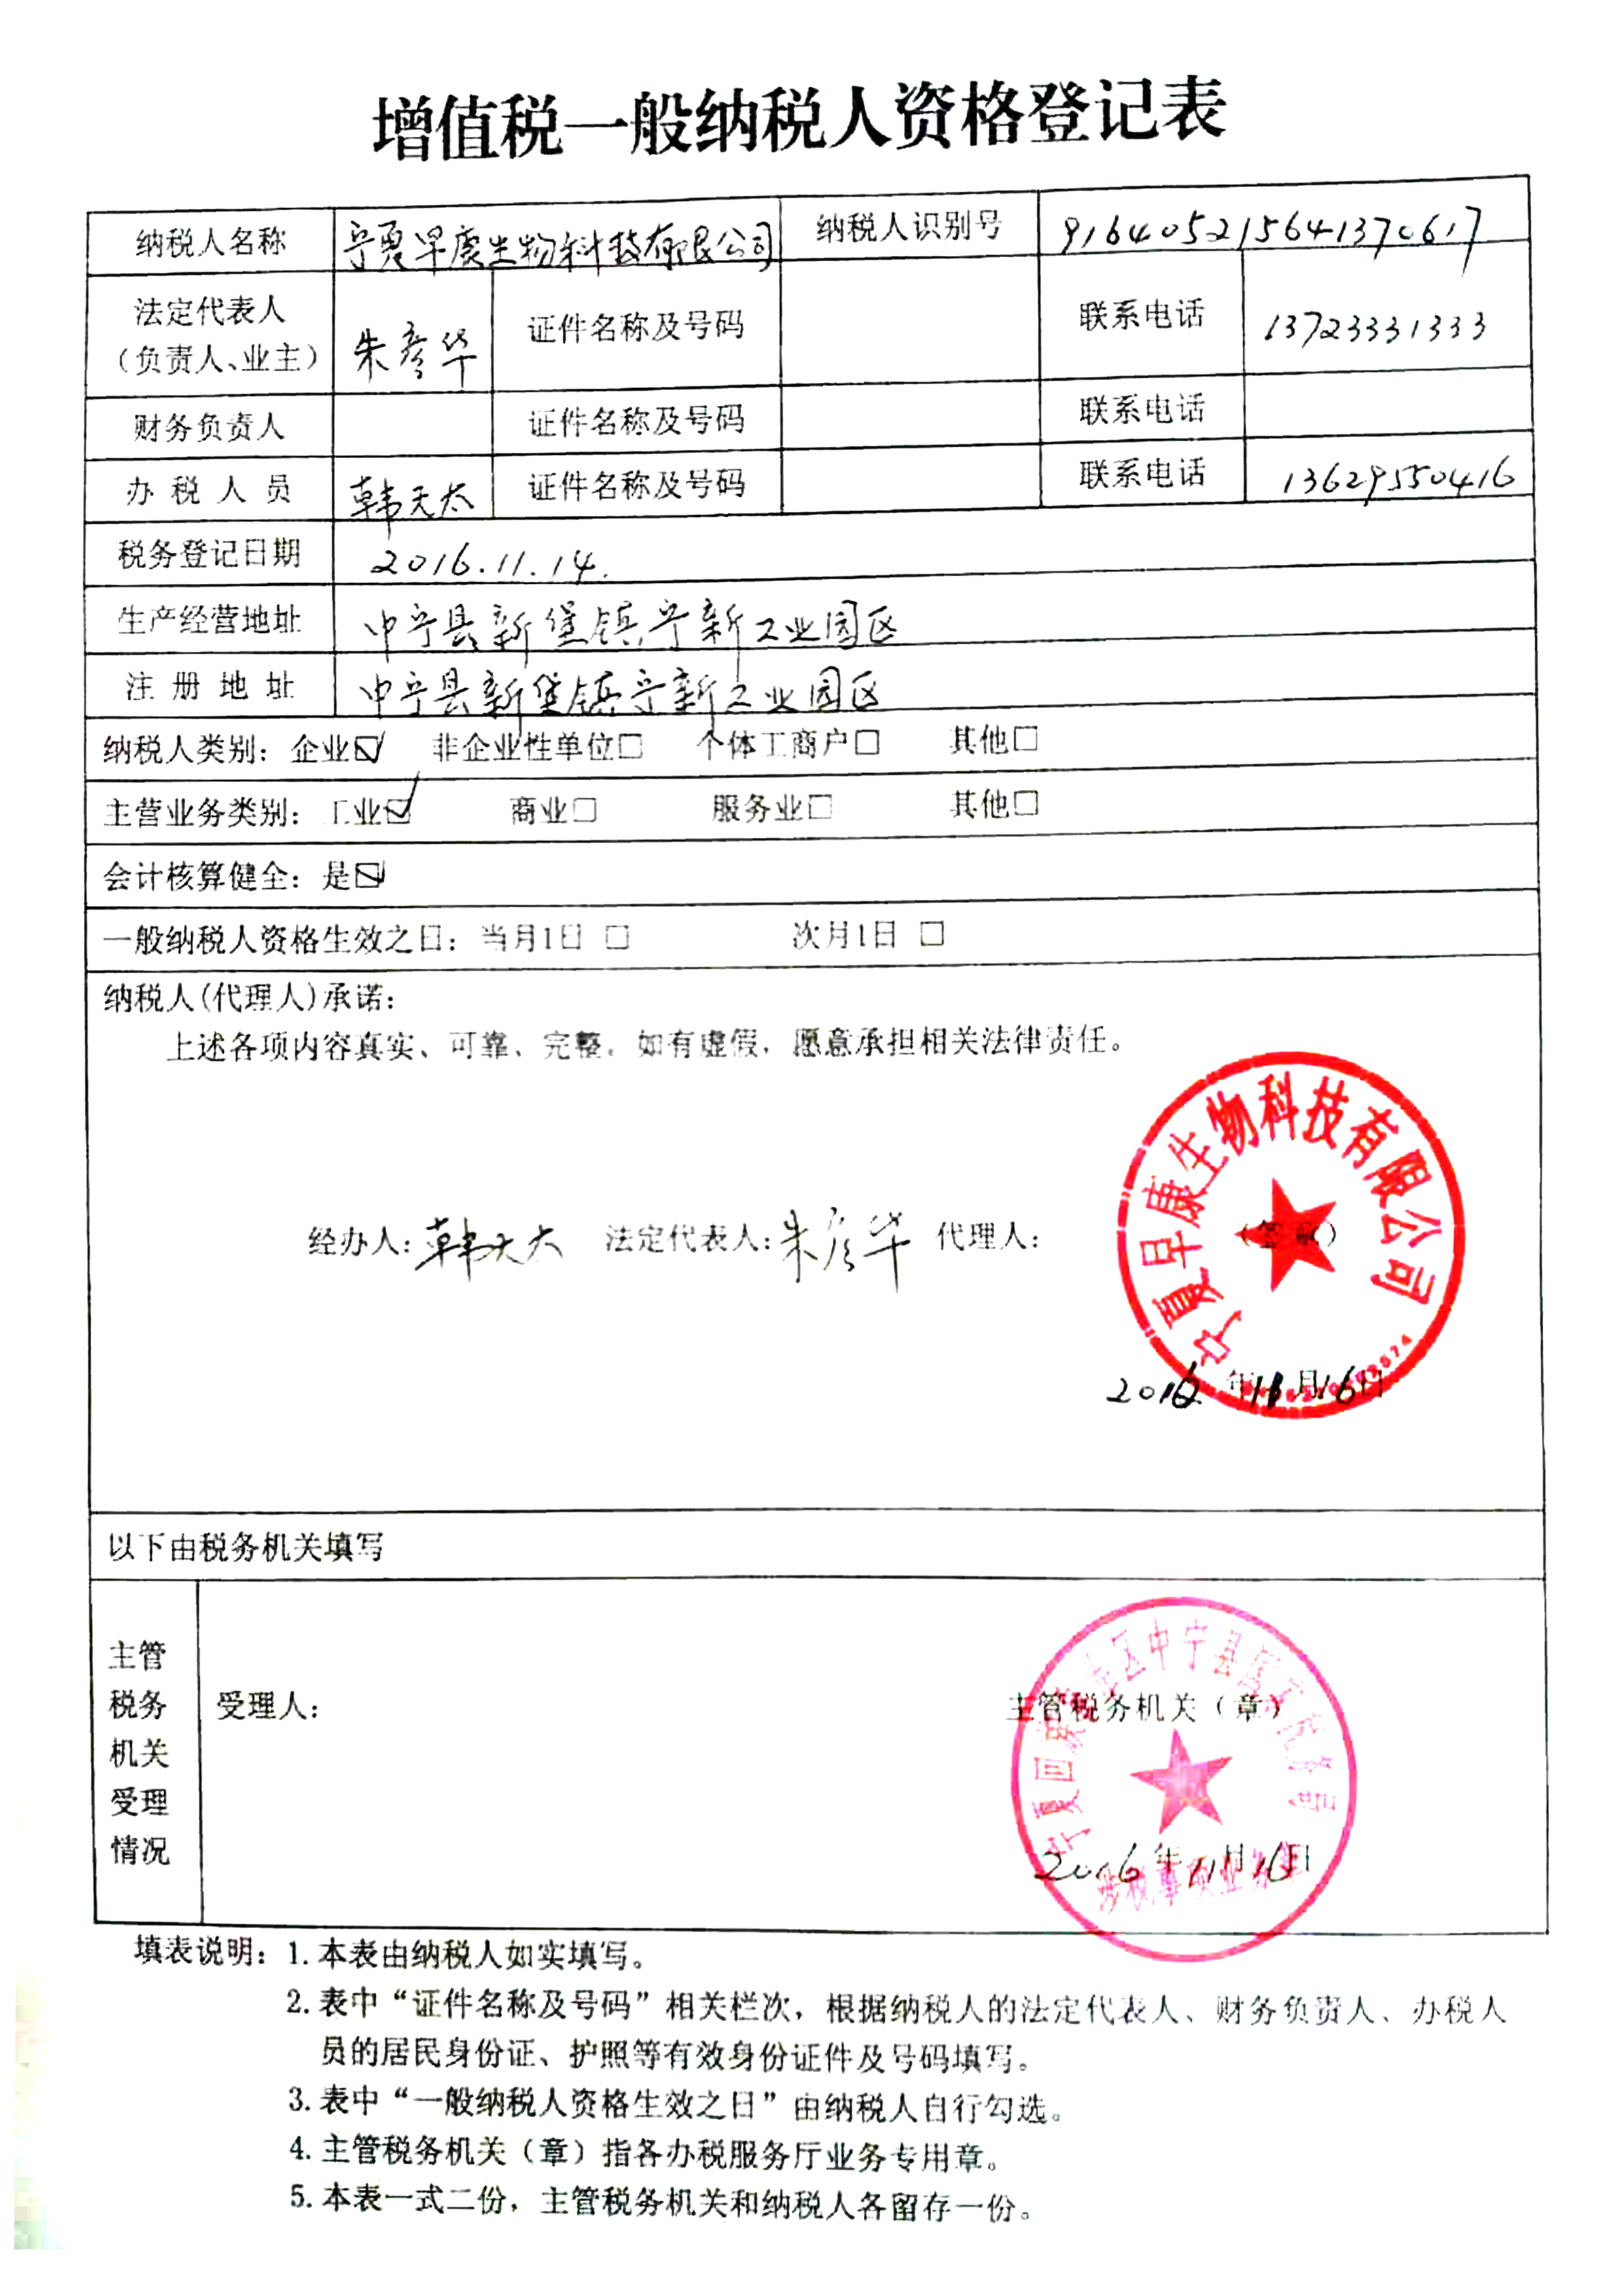 增值税一般纳税人资格登记表
纳税人名称 宁夏早康生物科技有限公司 纳税人识别号 916405215641370617
法定代表人
(负责人、业主) 朱彦华 证件名称及号码 联系电话 13723331333
财务负责人 证件名称及号码 联系电话
办税人员 韩天太 证件名称及号码 联系电话 13629550416
税务登记日期 2016.11.14.
生产经营地址 中宁县新堡镇宁新工业园区
注册地址 中宁县新堡镇宁新工业园区
纳税人类别：企业☑ 非企业性单位□ 个体工商户□ 其他□
主营业务类别：工业☑ 商业□ 服务业□ 其他□
会计核算健全：是☑
一般纳税人资格生效之日：当月1日 □ 次月1日 □
纳税人(代理人)承诺：
上述各项内容真实、可靠、完整。如有虚假，愿意承担相关法律责任。
宁夏早康生物科技有限公司
经办人：韩天太 法定代表人：朱彦华 代理人： (签章)
2016年11月16日
以下由税务机关填写
主管
税务
机关
受理
情况
受理人： 主管税务机关（章）
宁夏回族自治区中宁县国家税务局
2016年11月16日
填表说明：1.本表由纳税人如实填写。
2.表中“证件名称及号码”相关栏次，根据纳税人的法定代表人、财务负责人、办税人
员的居民身份证、护照等有效身份证件及号码填写。
3.表中“一般纳税人资格生效之日”由纳税人自行勾选。
4.主管税务机关（章）指各办税服务厅业务专用章。
5.本表一式二份，主管税务机关和纳税人各留存一份。